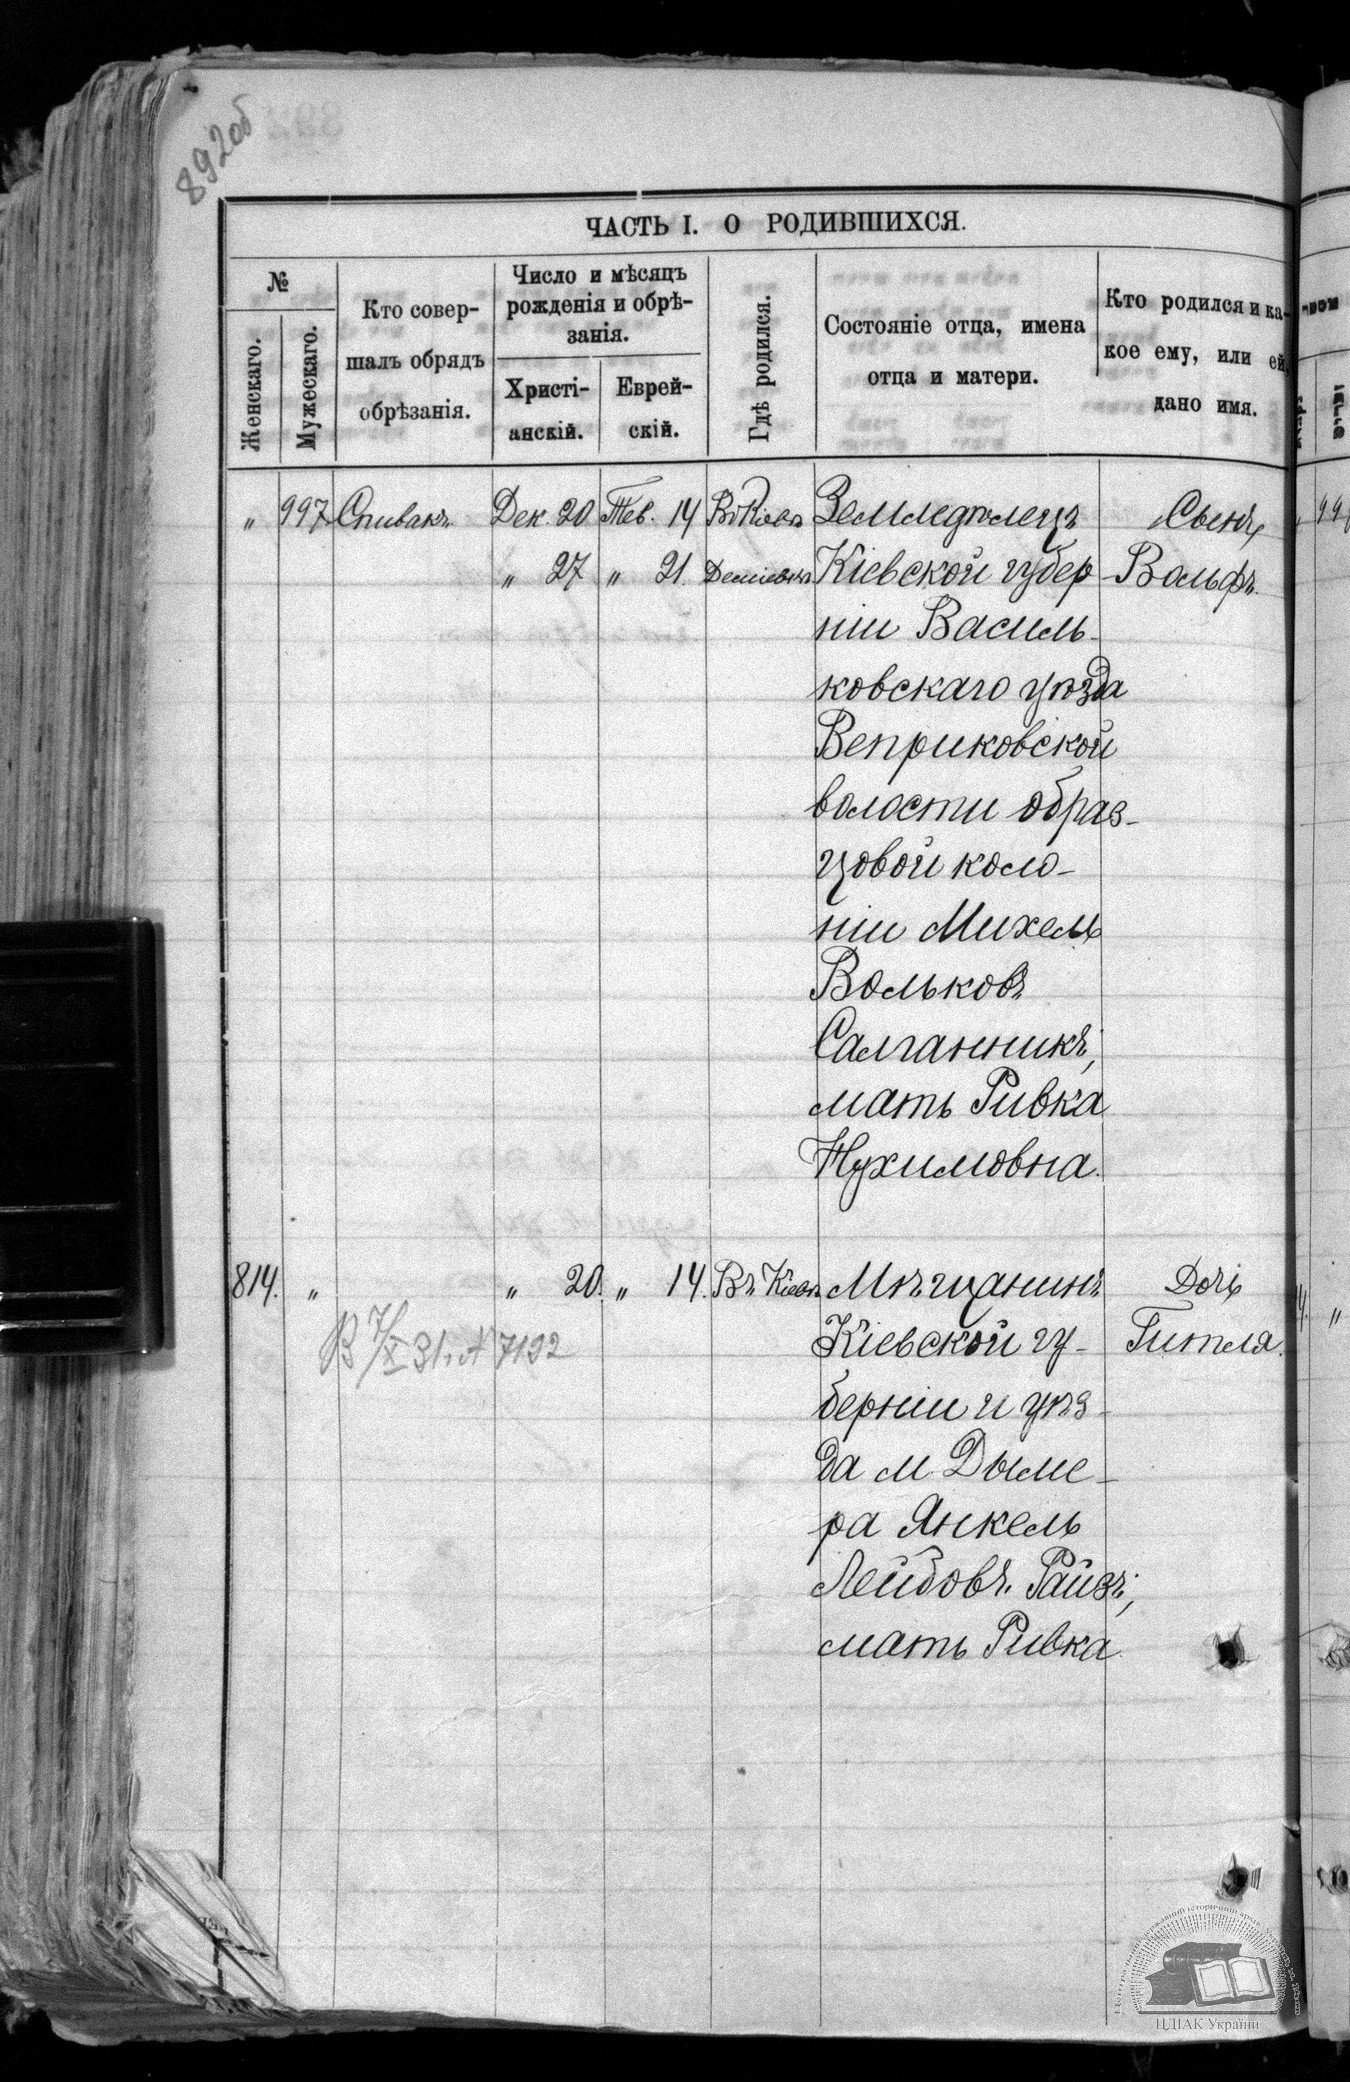 892об
ЧАСТЬ I. О РОДИВШИХСЯ.
№
Женскаго.
Мужескаго.
Кто совер-
шалъ обрядъ
обрѣзанія.
Число и мѣсяцъ
рожденія и обрѣ-
занія.
Христі-
анскій.
Еврей-
скій.
Гдѣ родился.
Состояніе отца, имена
отца и матери.
Кто родился и ка-
кое ему, или ей,
дано имя.
„ 997 Спивакъ Дек. 20 Тев. 14 В. Кіевѣ Земледѣлецъ Сынъ
„ 27 „ 21 Деміевка Кіевской губер Вольфъ.
ніи Василь-
ковскаго уѣзда
Веприковской
волости образ-
цовой коло-
ніи Михель
Вольковъ
Салганникъ,
мать Ривка
Нухимовна.
814. „ „ 20. „ 14. Въ Кіевѣ Мѣщанинъ Дочь
Кіевской гу- Гитля.
В 7/X 31. № 7192
берніи и уѣз-
да м. Дыме-
ра Янкель
Лейбовъ Райзъ,
мать Ривка.
ЦДІАК України